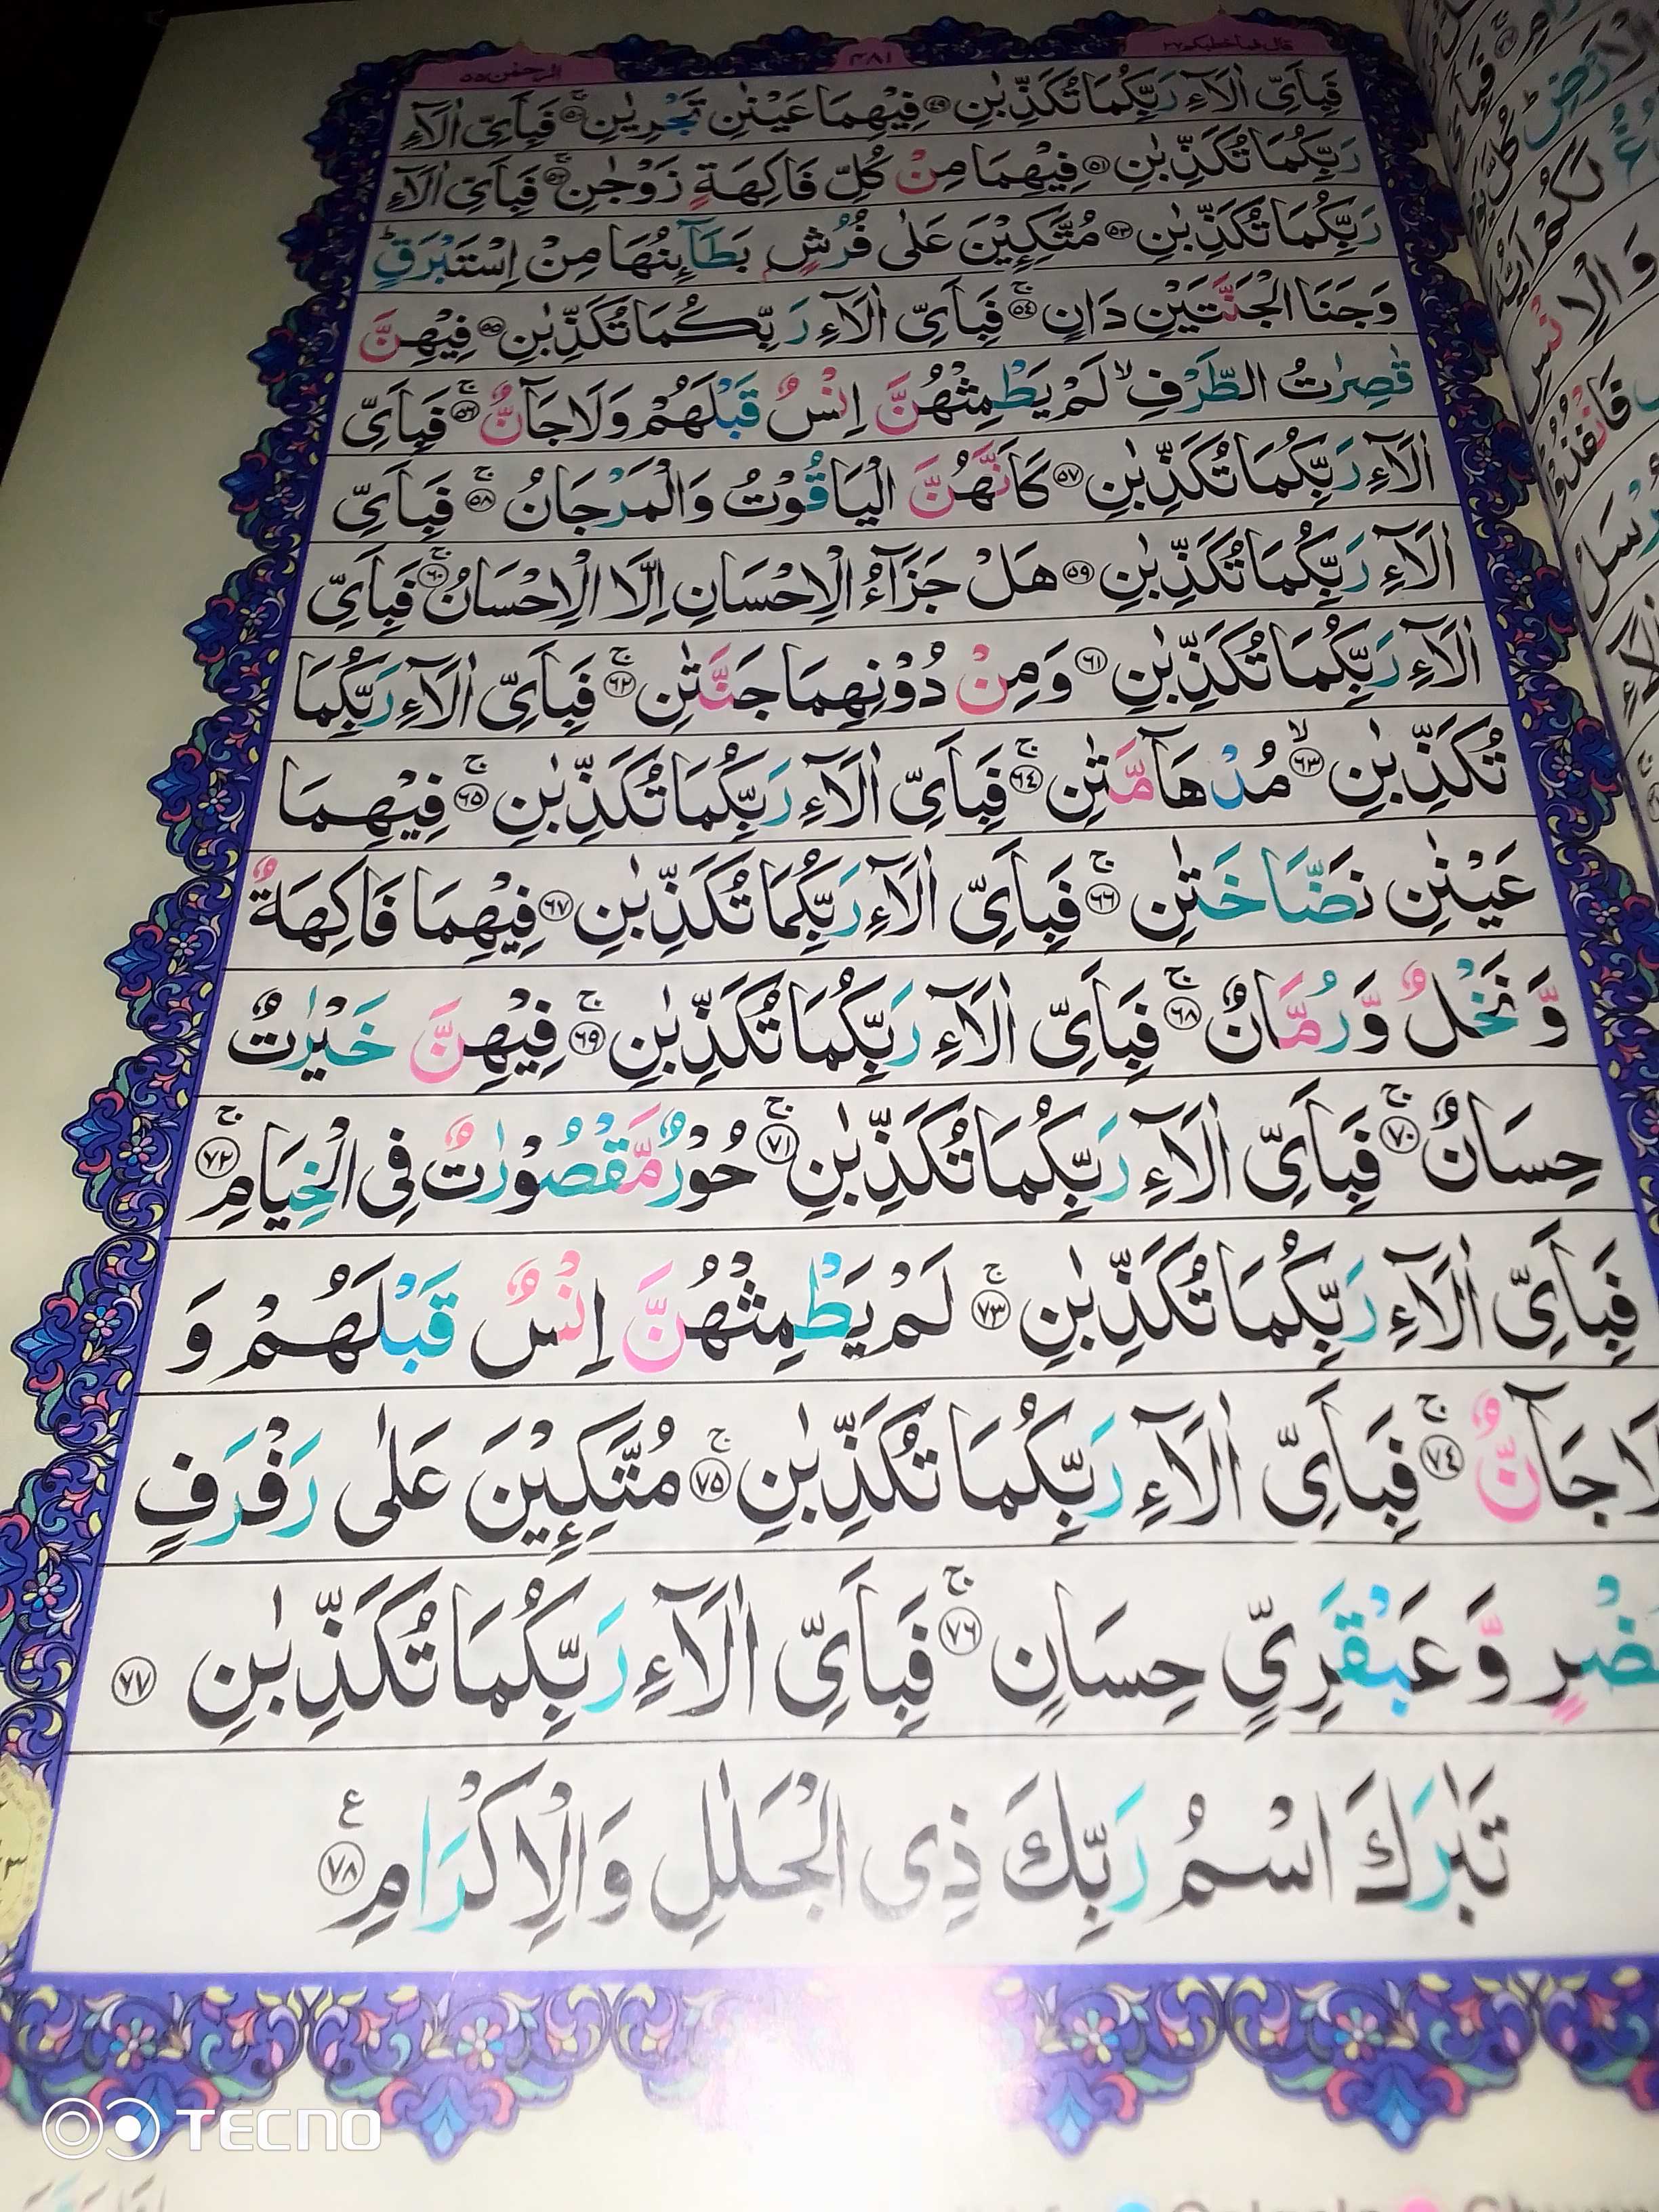 قال فما خطبكم ٢٧
٤٨١
الرحمٰن ٥٥
فَبِاَيِّ اٰلَآءِ رَبِّكُمَا تُكَذِّبٰنِ ٤٩ فِيْهِمَا عَيْنٰنِ تَجْرِيٰنِ ۚ ٥٠ فَبِاَيِّ اٰلَآءِ
رَبِّكُمَا تُكَذِّبٰنِ ٥١ فِيْهِمَا مِنْ كُلِّ فَاكِهَةٍ زَوْجٰنِ ۚ ٥٢ فَبِاَيِّ اٰلَآءِ
رَبِّكُمَا تُكَذِّبٰنِ ٥٣ مُتَّكِـِٕيْنَ عَلٰى فُرُشٍۭ بَطَآئِنُهَا مِنْ اِسْتَبْرَقٍ ؕ
وَجَنَا الْجَنَّتَيْنِ دَانٍ ۚ ٥٤ فَبِاَيِّ اٰلَآءِ رَبِّكُمَا تُكَذِّبٰنِ ٥٥ فِيْهِنَّ
قٰصِرٰتُ الطَّرْفِ ۙ لَمْ يَطْمِثْهُنَّ اِنْسٌ قَبْلَهُمْ وَلَا جَآنٌّ ۚ ٥٦ فَبِاَيِّ
اٰلَآءِ رَبِّكُمَا تُكَذِّبٰنِ ٥٧ كَاَنَّهُنَّ الْيَاقُوْتُ وَالْمَرْجَانُ ۚ ٥٨ فَبِاَيِّ
اٰلَآءِ رَبِّكُمَا تُكَذِّبٰنِ ٥٩ هَلْ جَزَآءُ الْاِحْسَانِ اِلَّا الْاِحْسَانُ ۚ ٦٠ فَبِاَيِّ
اٰلَآءِ رَبِّكُمَا تُكَذِّبٰنِ ٦١ وَمِنْ دُوْنِهِمَا جَنَّتٰنِ ۚ ٦٢ فَبِاَيِّ اٰلَآءِ رَبِّكُمَا
تُكَذِّبٰنِ ۙ ٦٣ مُدْهَآمَّتٰنِ ۚ ٦٤ فَبِاَيِّ اٰلَآءِ رَبِّكُمَا تُكَذِّبٰنِ ۚ ٦٥ فِيْهِمَا
عَيْنٰنِ نَضَّاخَتٰنِ ۚ ٦٦ فَبِاَيِّ اٰلَآءِ رَبِّكُمَا تُكَذِّبٰنِ ٦٧ فِيْهِمَا فَاكِهَةٌ
وَّنَخْلٌ وَّرُمَّانٌ ۚ ٦٨ فَبِاَيِّ اٰلَآءِ رَبِّكُمَا تُكَذِّبٰنِ ۚ ٦٩ فِيْهِنَّ خَيْرٰتٌ
حِسَانٌ ۚ ٧٠ فَبِاَيِّ اٰلَآءِ رَبِّكُمَا تُكَذِّبٰنِ ۚ ٧١ حُوْرٌ مَّقْصُوْرٰتٌ فِي الْخِيَامِ ۚ ٧٢
فَبِاَيِّ اٰلَآءِ رَبِّكُمَا تُكَذِّبٰنِ ۚ ٧٣ لَمْ يَطْمِثْهُنَّ اِنْسٌ قَبْلَهُمْ وَ
لَا جَآنٌّ ۚ ٧٤ فَبِاَيِّ اٰلَآءِ رَبِّكُمَا تُكَذِّبٰنِ ۚ ٧٥ مُتَّكِـِٕيْنَ عَلٰى رَفْرَفٍ
ضْرٍ وَّعَبْقَرِيٍّ حِسَانٍ ۚ ٧٦ فَبِاَيِّ اٰلَآءِ رَبِّكُمَا تُكَذِّبٰنِ ٧٧
تَبٰرَكَ اسْمُ رَبِّكَ ذِي الْجَلٰلِ وَالْاِكْرَامِ ۧ ٧٨
TECNO